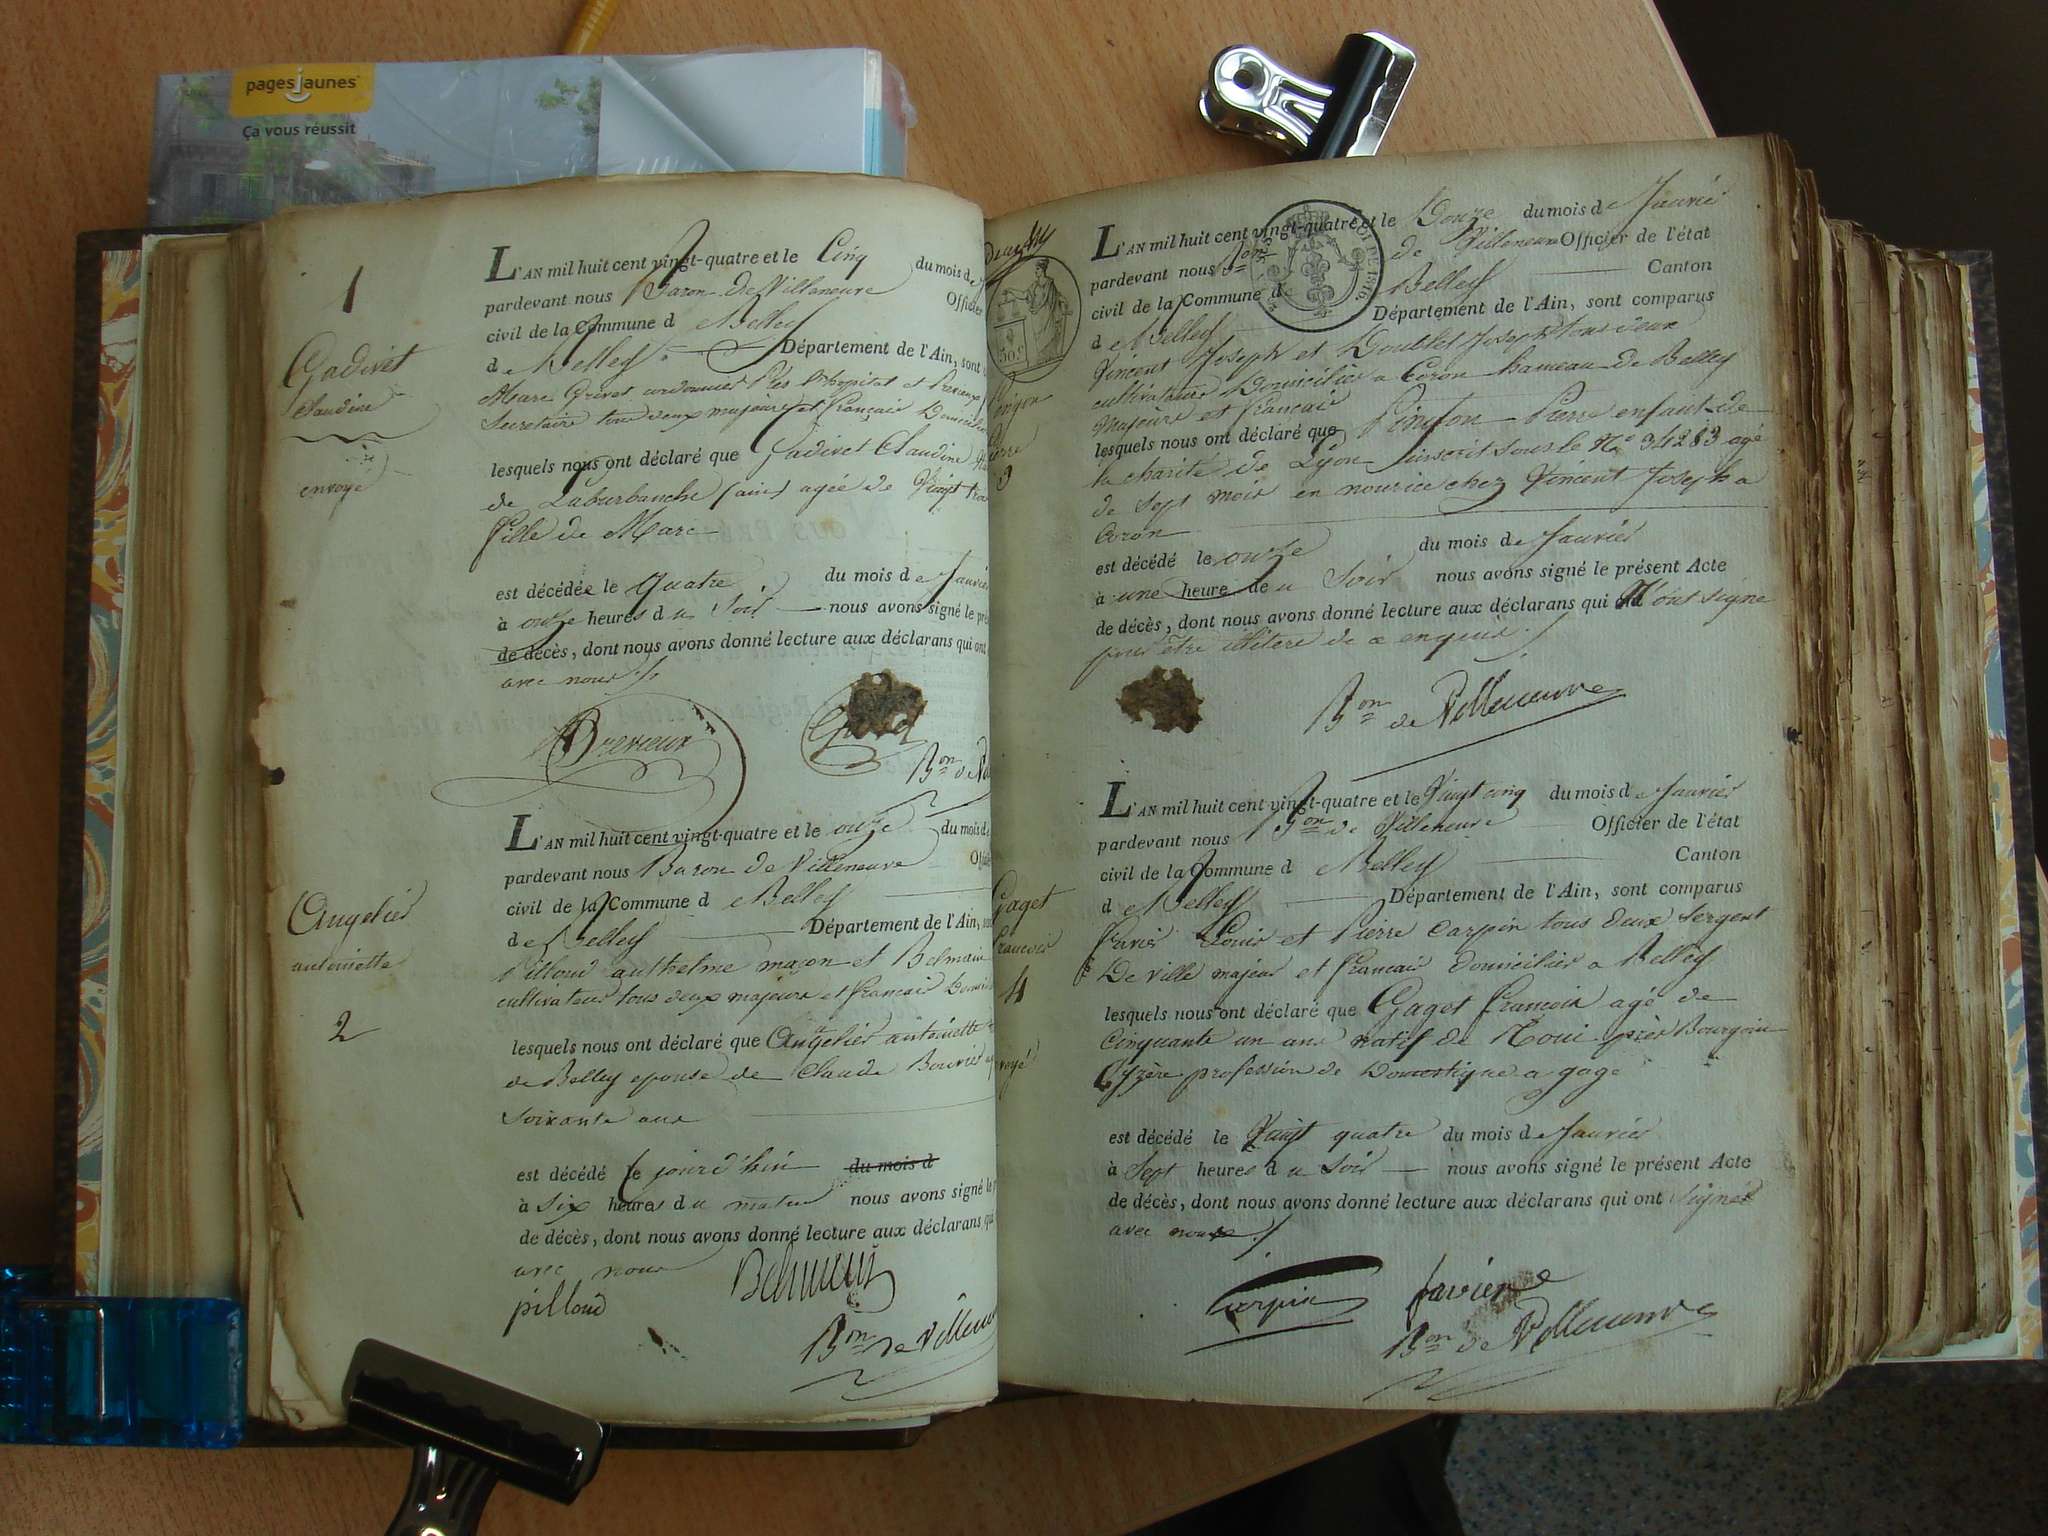 pagesjaunes
Ça vous réussit
1
Gadivet
Claudine
envoyé
L'AN mil huit cent vingt-quatre et le Cinq du mois de
pardevant nous Baron de Villeneuve Officier
civil de la Commune d e Belley
d e Belley Département de l'Ain, sont
Marc Grivet cordonnier Près l'hopital et
Secretaire tous deux majeurs et français
lesquels nous ont déclaré que Gadivet Claudine
de Laburbanche (ain) agée de Vingt
fille de Marc
est décédée le quatre du mois d e Janvier
à onze heures d u Soir nous avons signé le
de décès, dont nous avons donné lecture aux déclarans qui ont
avec nous
Bon de
Angelier
antoinette
2
L'AN mil huit cent vingt-quatre et le onze du mois d
pardevant nous Baron de Villeneuve
civil de la Commune d e Belley
d e Belley Département de l'Ain,
Pilloud anthelme maçon et Belmain
cultivateur tous deux majeurs et francais
lesquels nous ont déclaré que Angelier antoinette
de Belley epouse de Claude Bouvier
Soixante ans
est décédé le jourd'hui du mois d
à Six heures d u matin nous avons signé le
de décès, dont nous avons donné lecture aux déclarans
avec nous
pilloud
Bon de Villeneuve
50 c
Pierre
3
L'AN mil huit cent vingt-quatre et le Douze du mois d e Janvier
pardevant nous Bon de Villeneuve Officier de l'état
civil de la Commune de Belley Canton
d e Belley Département de l'Ain, sont comparus
Vincent Joseph et Doublet Joseph tous deux
cultivateurs Domiciliés a Coron hameau de Belley
Majeurs et français
lesquels nous ont déclaré que Pierre enfant de
la charité de Lyon inscrit sous le No 34283 agé
de Sept mois en nourice chez Vincent Joseph a
Coron
est décédé le onze du mois d e Janvier
à une heure de u Soir nous avons signé le présent Acte
de décès, dont nous avons donné lecture aux déclarans qui n'ont signé
pour être illitere de ce enquis
Bon de Villeneuve
Gaget
francois
4
L'AN mil huit cent vingt-quatre et le Vingt cinq du mois d e Janvier
pardevant nous Bon de Villeneuve Officier de l'état
civil de la Commune d e Belley Canton
d e Belley Département de l'Ain, sont comparus
Louis et Pierre Carpin tous deux Sergent
De ville majeurs et francais domiciliés a Belley
lesquels nous ont déclaré que Gaget francois agé de
Cinquante un ans natif de près Bourgoin
Yzère profession de Domestique a gage
est décédé le Vingt quatre du mois d e Janvier
à Sept heures d u Soir nous avons signé le présent Acte
de décès, dont nous avons donné lecture aux déclarans qui ont signés
avec nous
Carpin
Bon de Villeneuve